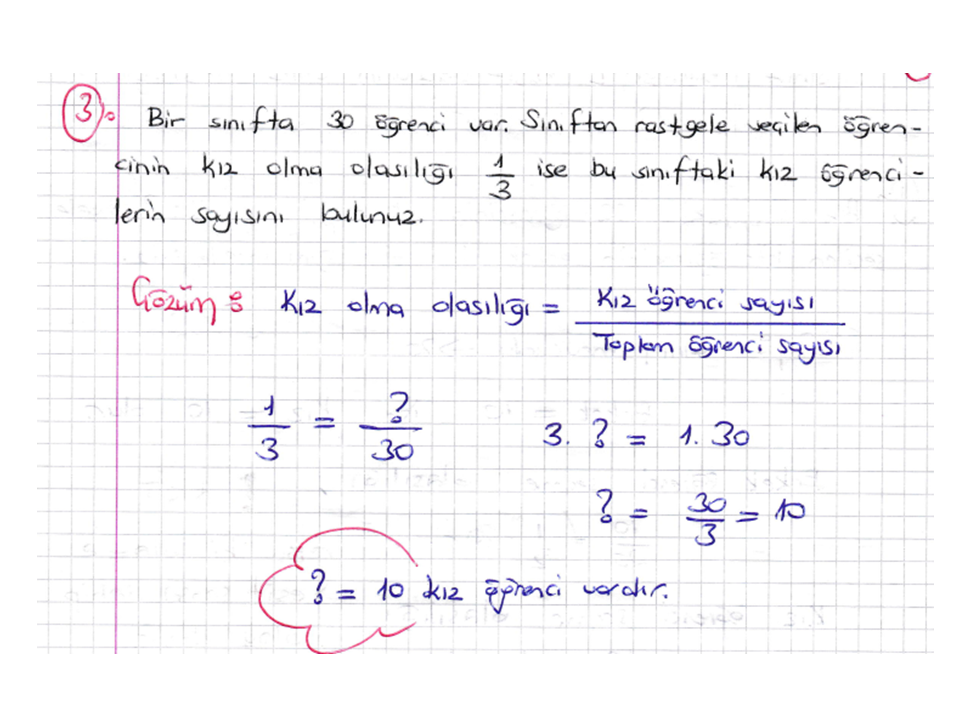 3) Bir sınıfta 30 öğrenci var. Sınıftan rastgele seçilen öğren-
cinin kız olma olasılığı 1/3 ise bu sınıftaki kız öğrenci-
lerin sayısını bulunuz.
Çözüm : Kız olma olasılığı = Kız öğrenci sayısı / Toplam öğrenci sayısı
1/3 = ?/30 3. ? = 1. 30
? = 30/3 = 10
? = 10 kız öğrenci vardır.